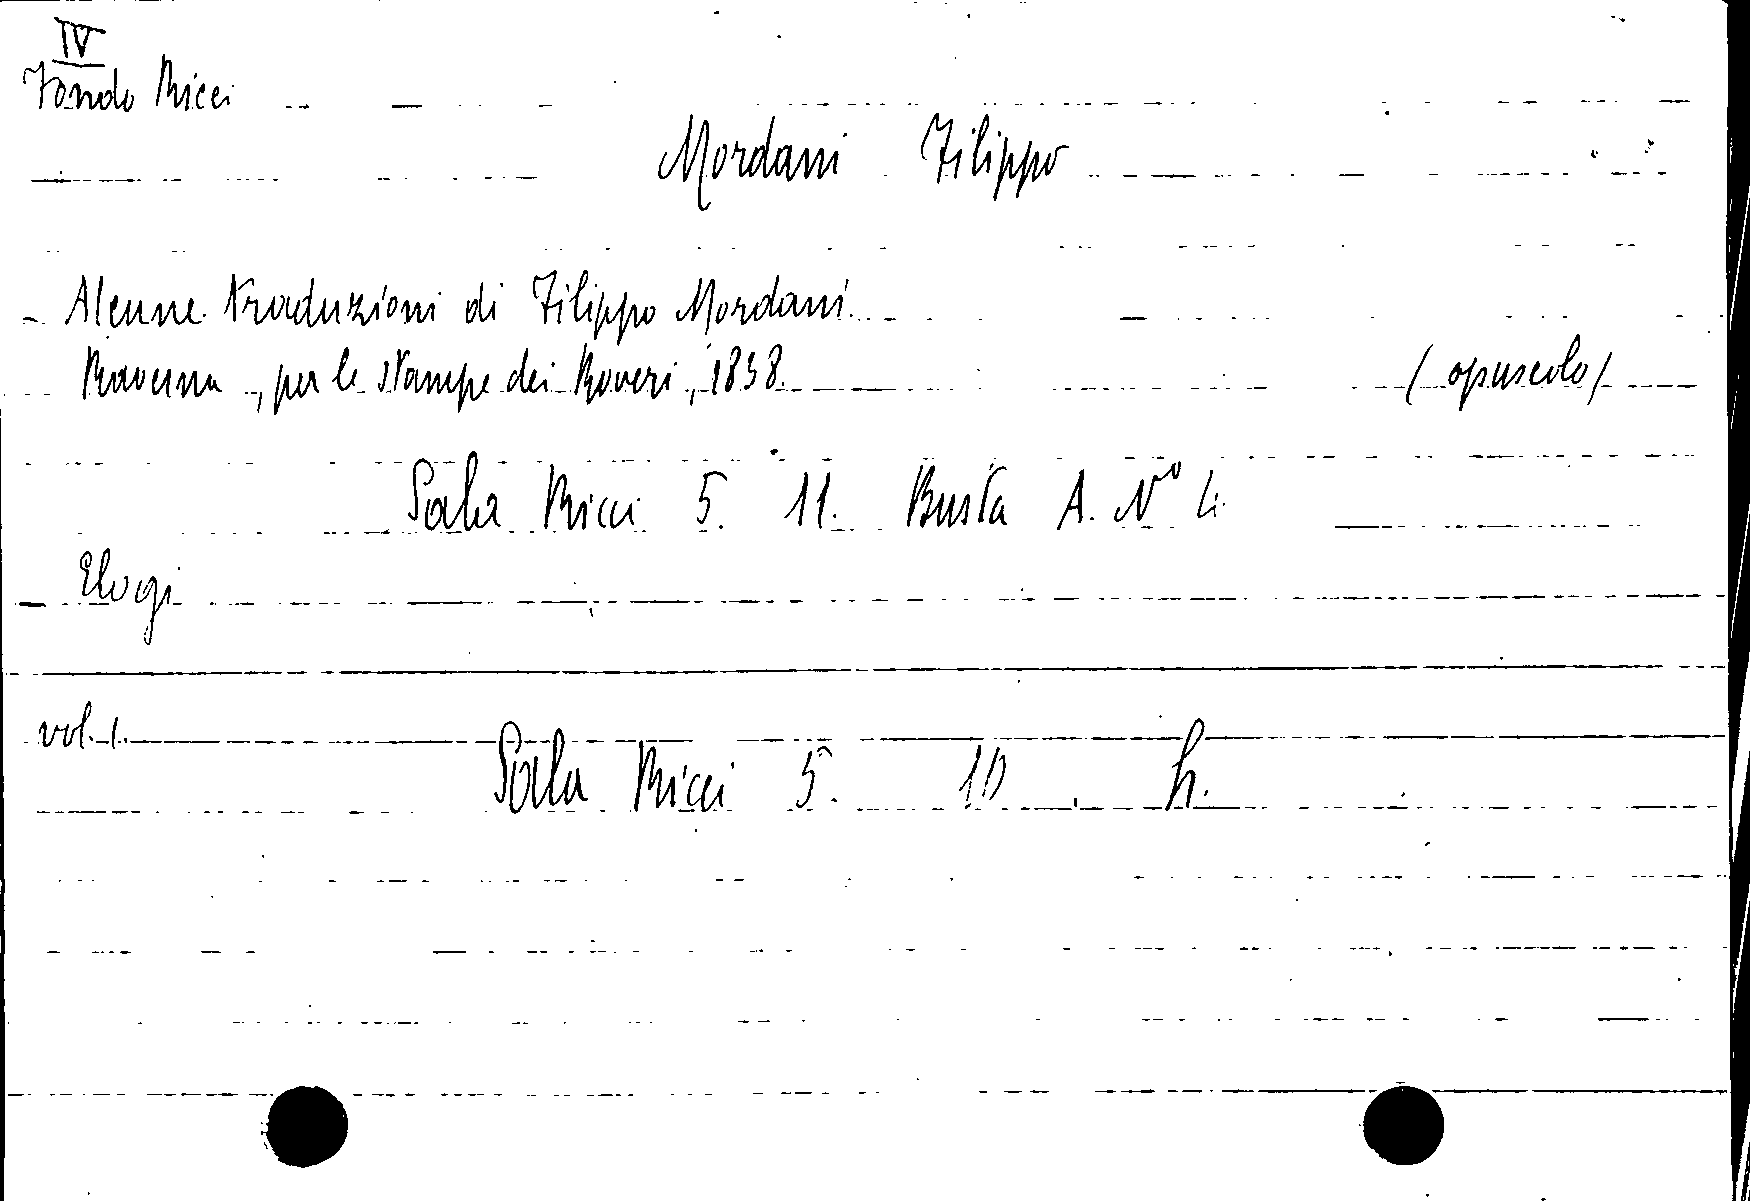 IV
Fondo Ricci
Mordani Filippo
Alcune traduzioni di Filippo Mordani.
Ravenna, per le stampe dei Roveri, 1838.
(opuscolo)
Sala Ricci 5. 11. Busta A. N° 4.
Elogi
vol. 1.
Sala Ricci 5. 10. h.